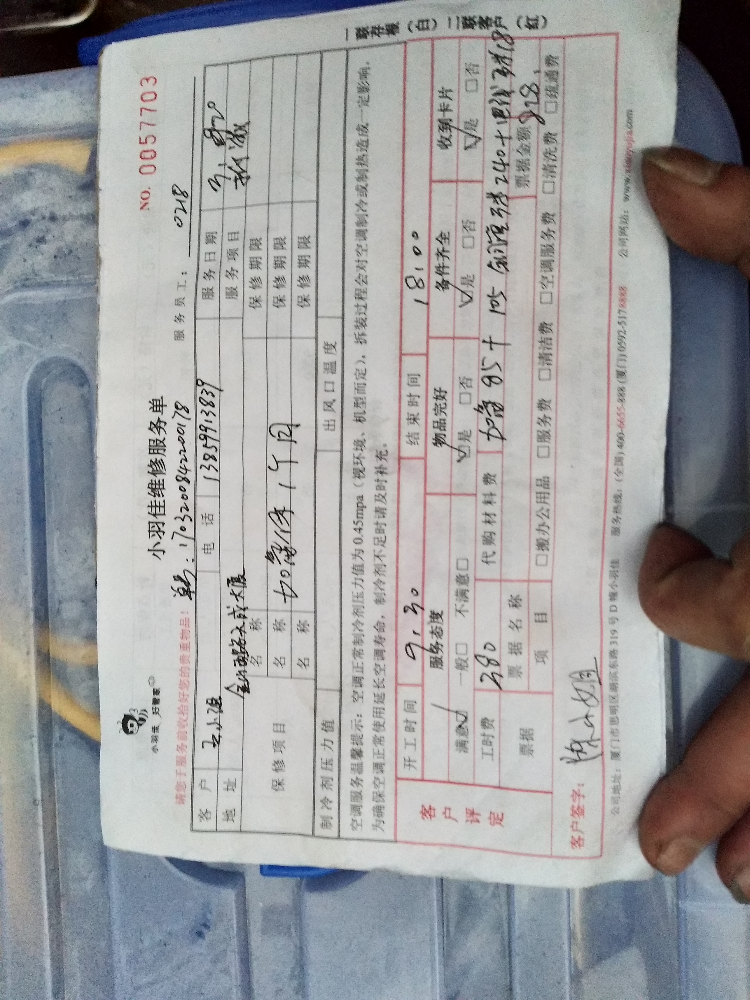 小羽佳 好管家
小羽佳维修服务单
NO. 0057703
单号: 1703200842200178
请您于服务前收拾好您的贵重物品!
服务员工: 0218
客户 王小姐 电话 13859913839 服务日期 3月20
地址 服务项目
保修项目 名称 保修期限
名称 加氟保 1个月 保修期限
名称 保修期限
制冷剂压力值 出风口温度
空调服务温馨提示: 空调正常制冷剂压力值为 0.45mpa (视环境、机型而定)、拆装过程会对空调制冷或制热造成一定影响,
为确保空调正常使用延长空调寿命, 制冷剂不足时请及时补充。
客户评定
开工时间 9:30 结束时间 18:00
服务态度 物品完好 备件齐全 收到卡片
满意☑ 一般□ 不满意□ ☑是 □否 ☑是 □否 ☑是 □否
工时费 380 代购材料费 加氟 95+105
票据 票据名称 票据金额
项目 □搬办公用品 □服务费 □清洁费 □空调服务费 □清洗费 □疏通费
客户签字:
公司地址: 厦门市思明区湖滨东路 319 号 D 幢小羽佳 服务热线: (全国) 400-6655-888 (厦门) 0592-5178888 公司网站:
一联存根(白) 二联客户(红)